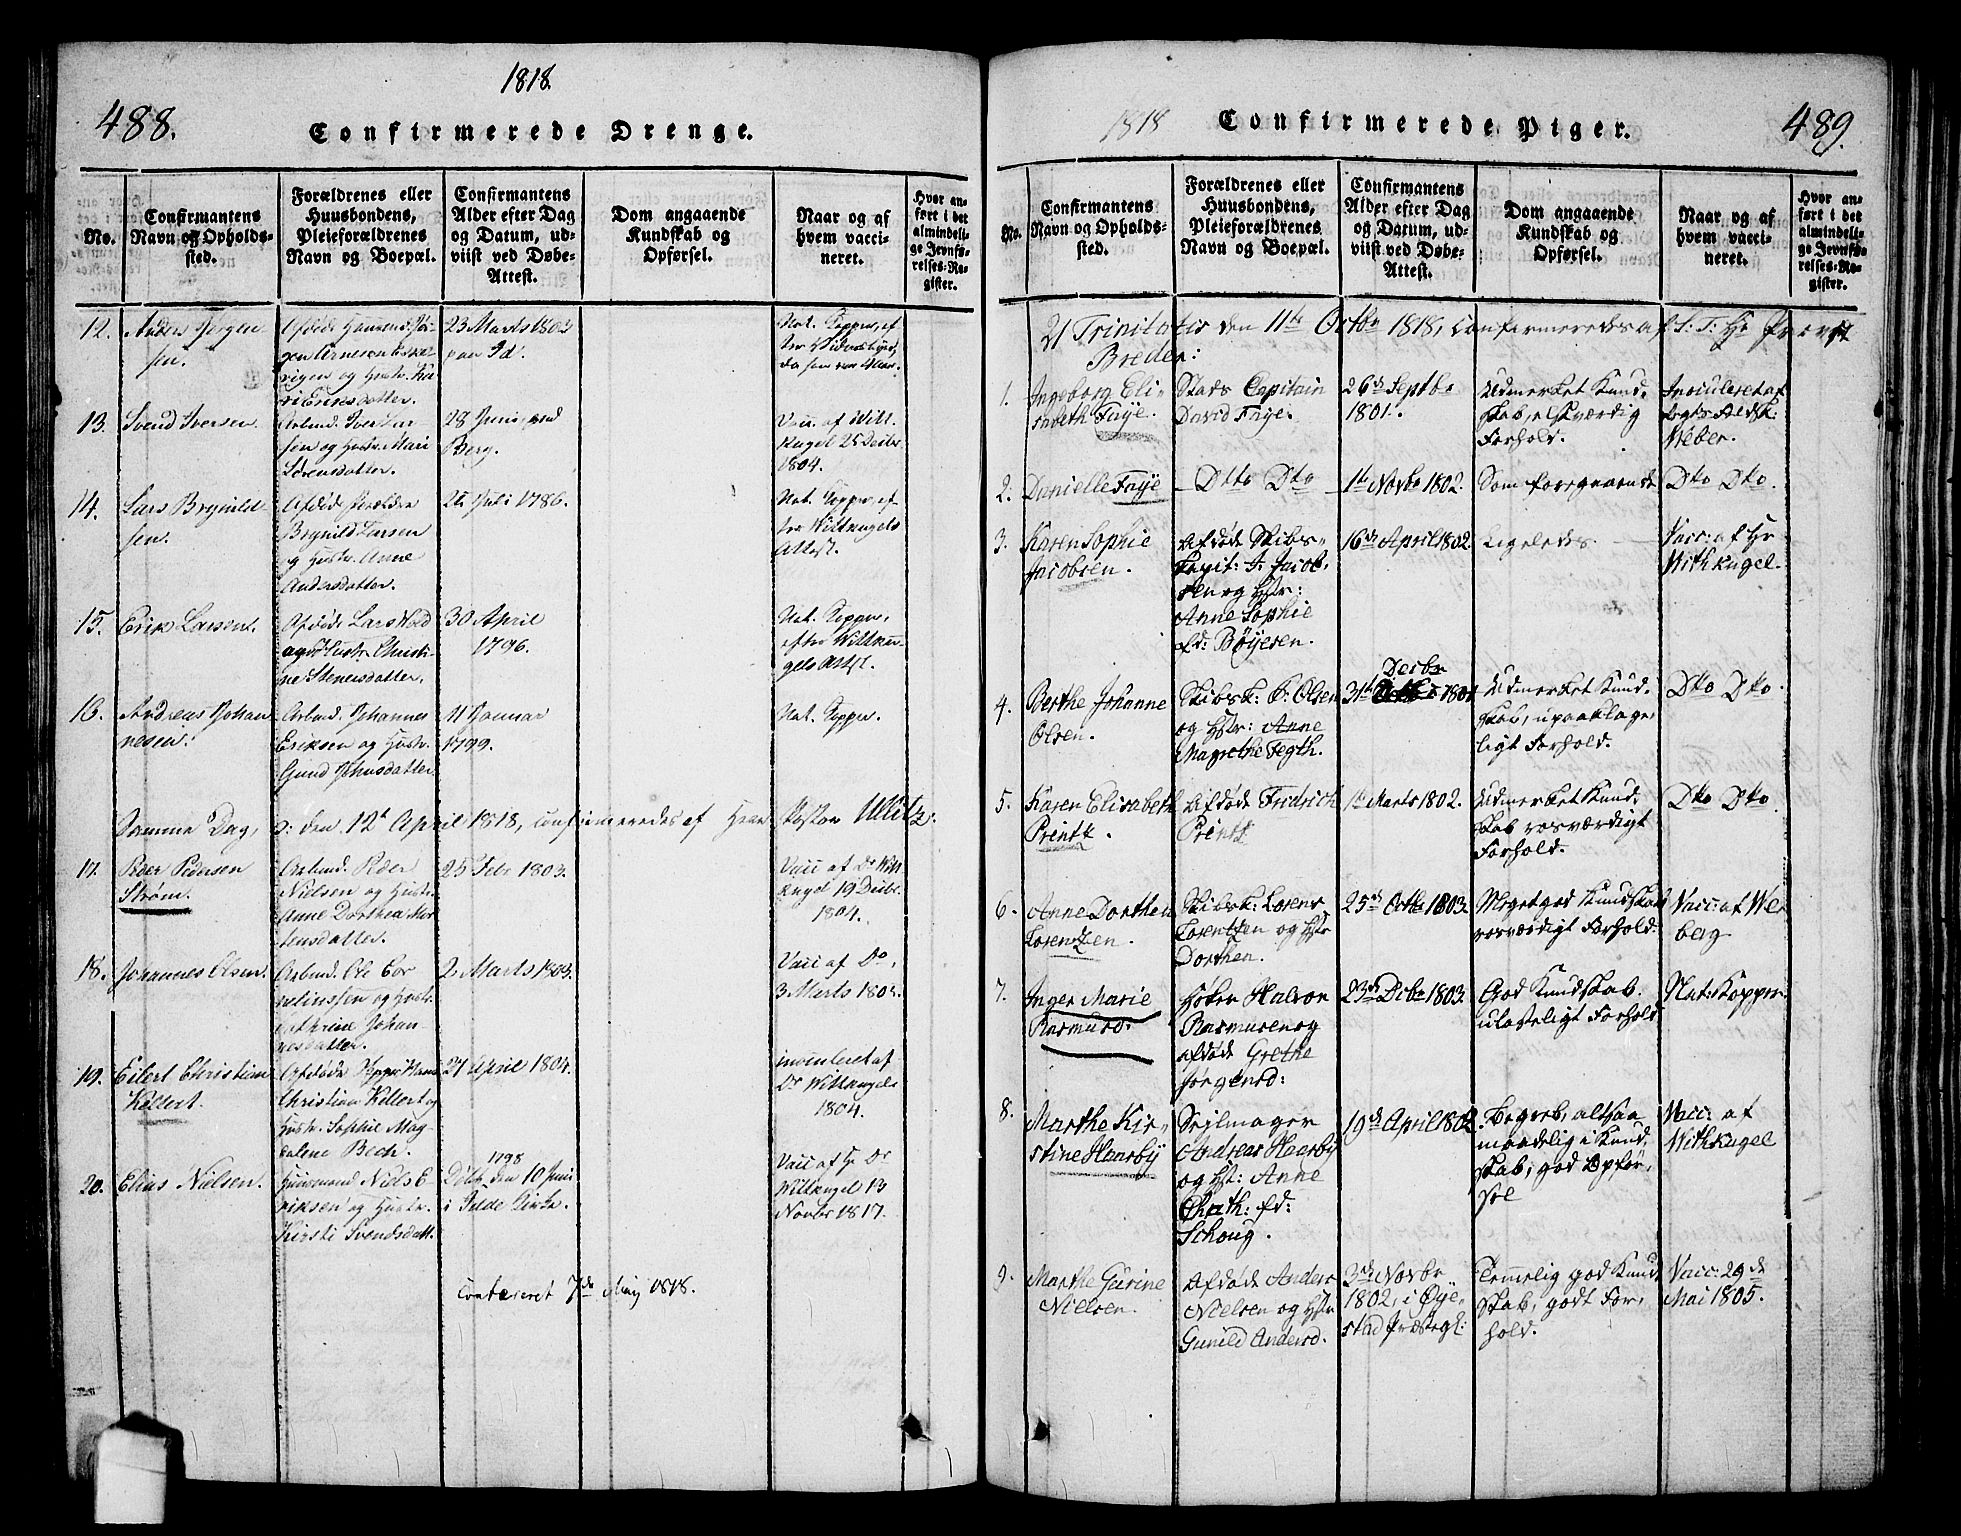 1818.
488.
Confirmerede Drenge.
No.
Confirmantens
Navn og Opholds-
sted.
Forældrenes eller
Huusbondens,
Pleieforældrenes
Navn og Boepæl.
Confirmantens
Alder efter Dag
og Datum, ud-
viist ved Døbe-
Attest.
Dom angaaende
Kundskab og
Opførsel.
Naar og af
hvem vacci-
neret.
Hvor an-
ført i det
almindeli-
ge Jevnfø-
relses-Re-
gister.
12.
Anders Jørgen
sen.
Afdøde
gen Arnesen
vigen og Hustr. Ka-
ri Eriksdatter.
23 Marts 1803
paa Id.
Nat. Kopper, ef
13.
Svend Iversen.
Arbmd. Iver Lar
sen og Hustr. Mari
Sørensdatter.
28 Juni
Berg.
Vacc. af Witt
kugel 25 Decbr
1804.
14.
Lars Brynild
sen.
Afdøde
Brynild Larsen
og Hustr. Anne
Andersdatter.
Juli 1786.
Nat. Kopper, ef
ter Wittkugels
Attest.
15.
Erik Larsen.
Afdøde Lars
og Hustr. Christi-
ne Stenersdatter.
30 April
1796.
Nat. Kopper,
efter Wittku-
gels Attest.
16.
Andreas Johan
nesen.
Arbmd. Johannes
Eriksen og Hustr.
Gund
11 Januar
1799.
Nat. Kopper.
Samme Dag, o: den 12te April 1818, confirmeredes af Herr Pastor Ullitz.
17.
Peder Pedersen
Strøm.
Arbmd. Peder
Nielsen og Hustr.
Anne Dorthea Mor
tensdatter.
25 Febr 1803.
Vacc af Dr Witt
kugel 19 Decbr.
1804.
18.
Johannes Olsen.
Arbmd. Ole Cor
neliussen og Hustr.
Cathrine Johan-
nesdatter.
2 Marts 1803.
Vacc af Do,
3 Marts 1803.
19.
Eilert Christian
Kellert.
Afdøde
Christian Kellert og
Hustr. Sophie Mag
dalene Bech.
27 April 1804.
af
Dr Wittkugels
1804.
20.
Elias Nielsen.
Huusmand Niels E
riksen og Hustr.
Kirsti Svendsdatt.
1798
Døbt den 10 Juni
i Kirke.
Vacc af H Dr
Wittkugel 13
Novbr 1817.
Confereret 7de Maj 1818.
1818
Confirmerede Piger.
489.
No.
Confirmantens
Navn og Opholds-
sted.
Forældrenes eller
Huusbondens,
Pleieforældrenes
Navn og Boepæl.
Confirmantens
Alder efter Dag
og Datum, ud-
viist ved Døbe-
Attest.
Dom angaaende
Kundskab og
Opførsel.
Naar og af
hvem vacci-
neret.
Hvor an-
ført i det
almindeli-
ge Jevnfø-
relses-Re-
gister.
21 Trinitatis den 11te Octbr 1818, Confirmeredes af S: T: Hr Provst
Breder:
1.
Ingeborg Eli-
sabeth Faye.
Stads Capitain
David Faye.
26de Septbr
1801.
Udmerket Kund-
skab, elskværdig
Forhold.
Inoculeret af
Weber.
2.
Danielle Faye
Dtto Dto
1te Novbr 1802.
Som foregaaende
Dto Dto.
3.
Karen Sophie
Jacobsen.
Afdøde Skibs-
Capit: J. Jacob-
sen og Hstr:
Anne Sophie
fd: Böyesen.
16de April 1802.
Ligeledes.
Vacc: af Hr
Withkugel.
4.
Berthe Johanne
Olsen.
Skibsk: F: Olsen
og Hstr: Anne
Magrethe Fegth.
Decbr
31te 1801
Udmerket Kund-
skab, upaaklage-
ligt Forhold.
Dto Dto.
5.
Karen Elisabeth
Printz.
Afdøde Fredrich
Printz
1te Marts 1802.
Udmerket Kund-
skab rosværdigt
Forhold.
Dto Dto
6.
Anne Dorthea
Lorentzen.
Skibsk: Lorens
Lorentzen og Hstr
Dorthea.
25de Octbr 1803.
Meget god Kundskab
rosværdigt Forhold.
Vacc: af We
berg
7.
Inger Marie
Rasmusd.
Høker Halvor
Rasmusen og
afdøde Grethe
Jørgensd:
23de Decbr 1803.
God Kundskab.
ulasteligt Forhold
Nat: Kopper
8.
Marthe Kir-
stine Haasby
Sejlmager
Andreas Haasby
og Hst: Anne
Chath: fd:
Schoug.
19de April 1802
Begreb, altsaa
maadelig i Kund
skab; god Opfør-
sel
Vacc: af
Withkugel
9.
Marthe Gurine
Nielsen.
Afdøde Anders
Nielsen og Hstr
Gunild Andersd.
3de Novbr
1802, i Øye-
stad Præstegl:
Temmelig god Kund
skab, godt For-
hold.
Vacc: 29de
Mai 1805.